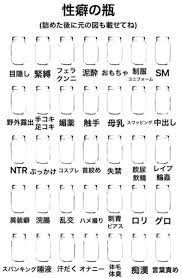 性癖の瓶
(詰めた後に元の図も載せてね)
目隠し 緊縛 フェラ タンニー 泥酔 おもちゃ 制服 ユニフォーム SM
野外露出 手コキ 足コキ 媚薬 触手 母乳 スワッピング 中出し
NTR ぶっかけ コスプレ 首絞め 失禁 飲尿 飲精 レイプ 輪姦
異装癖 浣腸 乱交 ハメ撮り 刺青 ピアス ロリ グロ
スパンキング 唾液 汗だく オナニー 体毛 体臭 痴漢 言葉責め